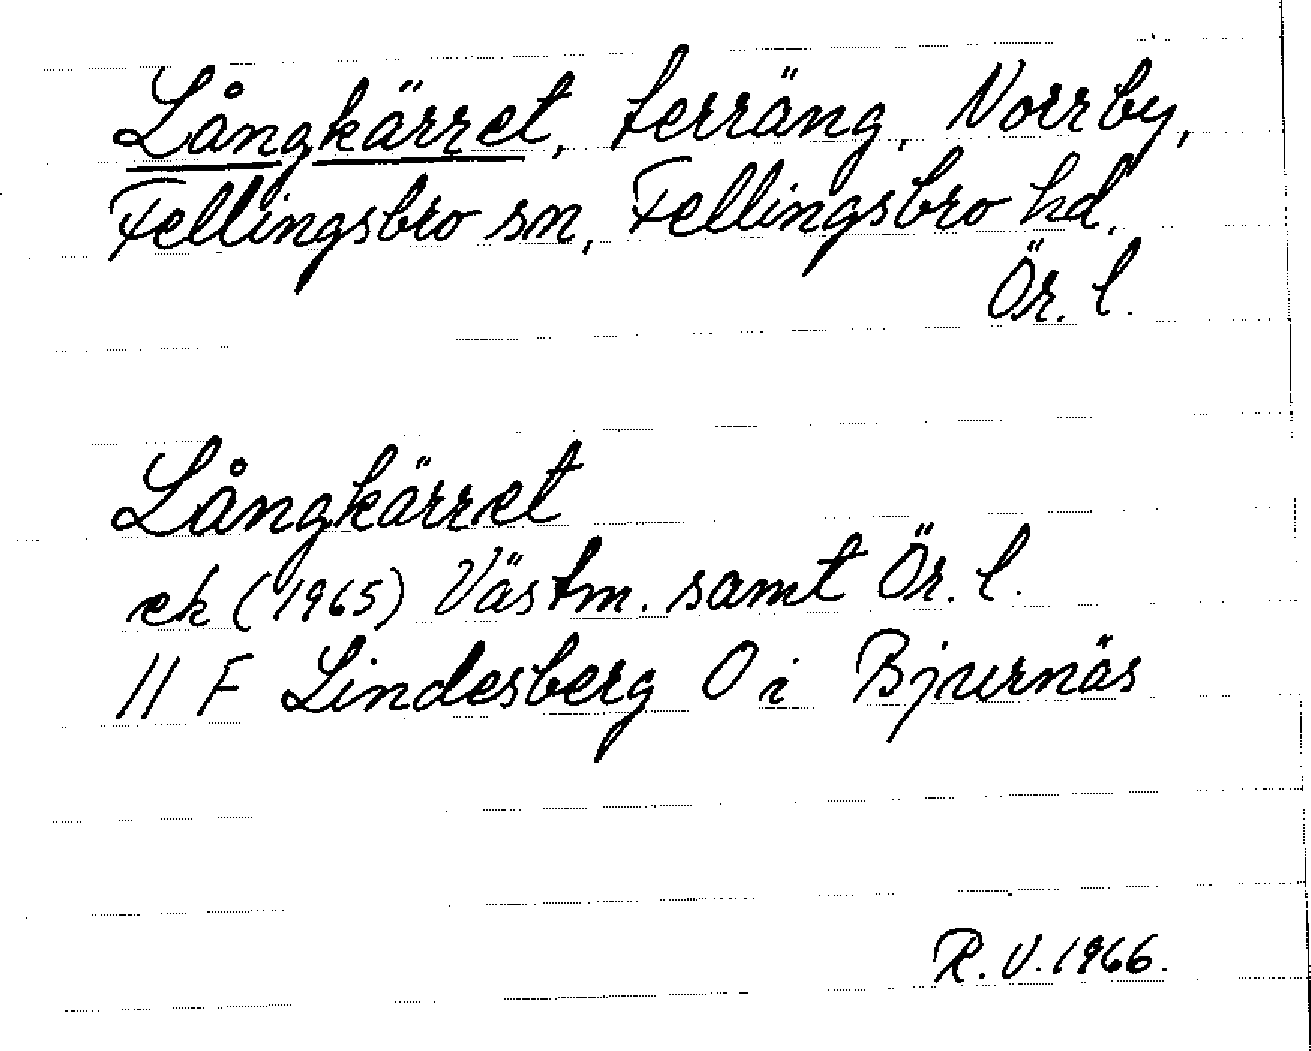 Långkärret, terräng, Norrby,
Fellingsbro sn, Fellingsbro hd.
Ör. l.
Långkärret
ek (1965) Västm. samt Ör. l.
11 F Lindesberg O i Bjurnäs
R. V. 1966.